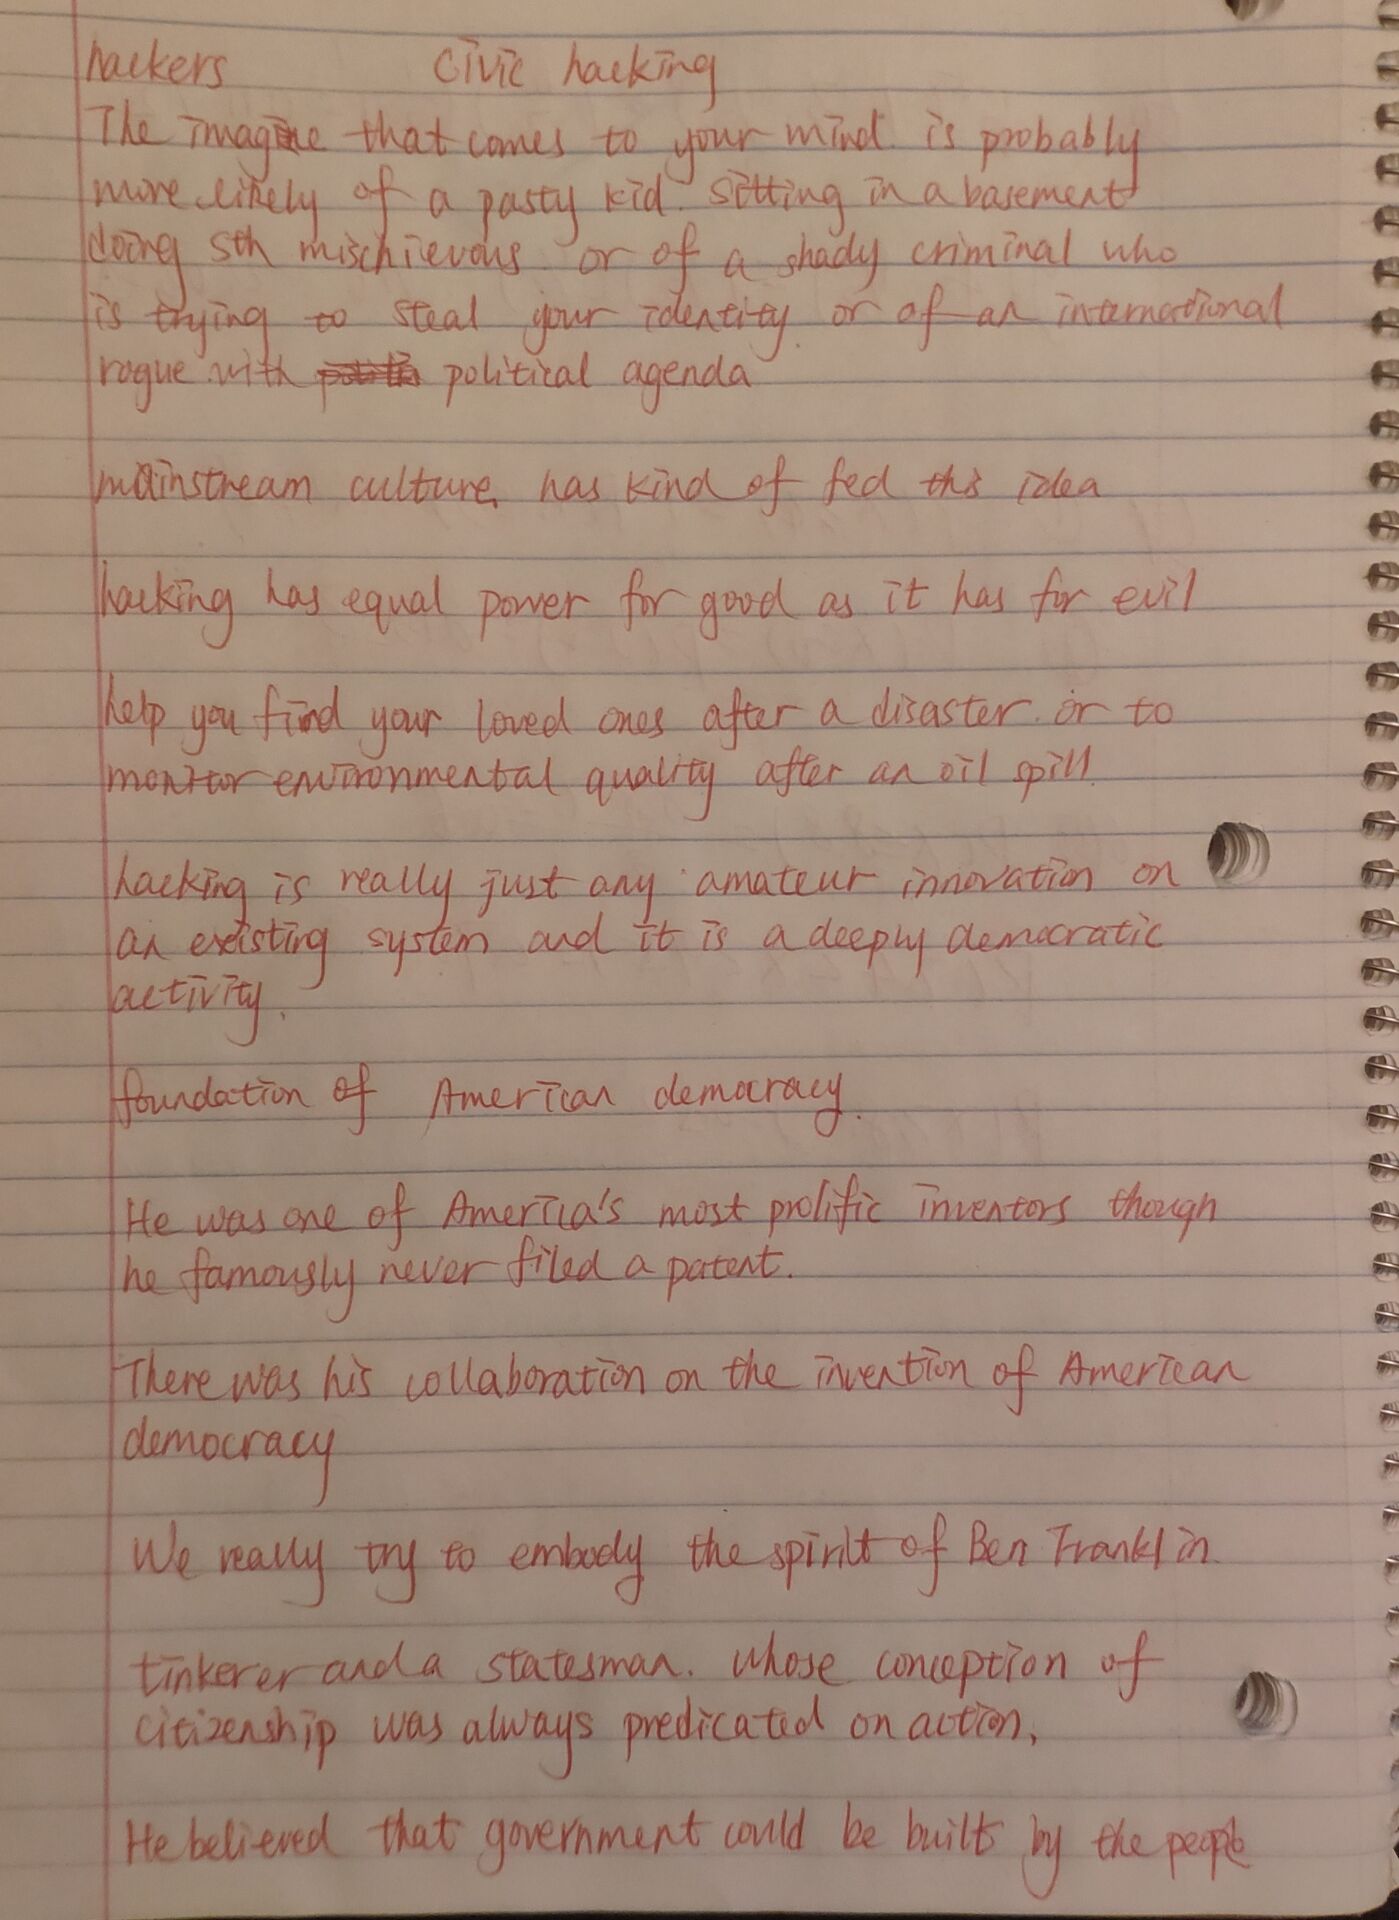 hackers Civic hacking
The imagine that comes to your mind is probably
more likely of a pasty kid sitting in a basement
doing sth mischievous or of a shady criminal who
is trying to steal your identity. or of an international
rogue with political agenda
mainstream culture has kind of fed this idea
hacking has equal power for good as it has for evil
help you find your loved ones after a disaster or to
monitor environmental quality after an oil spill.
hacking is really just any amateur innovation on
an existing system and it is a deeply democratic
activity.
foundation of American democracy.
He was one of America's most prolific inventors though
he famously never filed a patent.
There was his collaboration on the invention of American
democracy
We really try to embody the spirit of Ben Franklin.
tinkerer and a statesman. whose conception of
citizenship was always predicated on action.
He believed that government could be built by the people